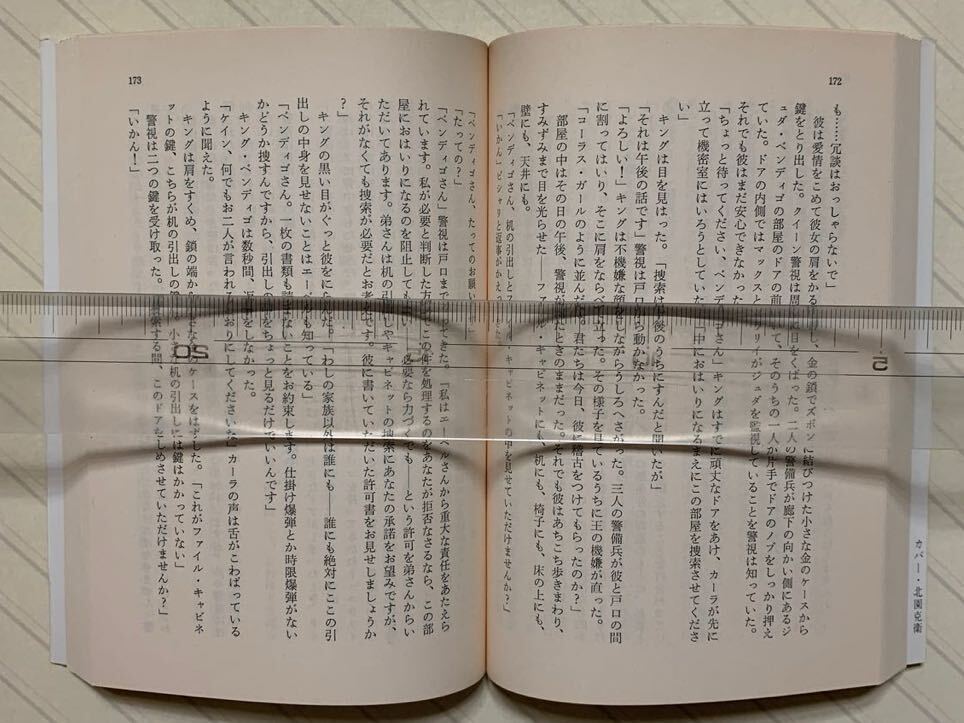 172
も……冗談はおっしゃらないで」
彼は愛情をこめて彼女の肩をかる
金の鎖でズボンに結びつけた小さな金のケースから
鍵をとり出した。クイーン警視は周
に目をくばった。二人の警備兵が廊下の向かい側にあるジ
ュダ・ベンディゴの部屋のドアの前
て、そのうちの一人が片手でドアのノブをしっかり押え
ていた。ドアの内側ではマックスと
リイがジュダを監視していることを警視は知っていた。
それでも彼はまだ安心できなかった
「ちょっと待ってください、ベンディゴさん」キングはすでに頑丈なドアをあけ、カーラが先に
立って機密室にはいろうとしていた
「中におはいりになるまえにこの部屋を捜索させてくださ
い」
キングは目を見はった。「捜索は午後のうちにすんだと聞いたが」
「それは午後の話です」警視は戸口から動かなかった。
「よろしい！」キングは不機嫌な顔をしながらうしろへさがった。三人の警備兵が彼と戸口の間
に割ってはいり、そこに肩をならべて立った。その様子を見ているうちに王の機嫌が直った。
「コーラス・ガールのように並んだな。君たちは今日、彼に稽古をつけてもらったのか？」
部屋の中はその日の午後、警視が見たときのままだった。それでも彼はあちこち歩きまわり、
すみずみまで目を光らせた——ファイル・キャビネットにも、机にも、椅子にも、床の上にも、
壁にも、天井にも。
「ベンディゴさん、机の引出しとファイル・キャビネットの中を見せていただけませんか？」
「いかん」ピシャリと返事がかえっ
173
「ベンディゴさん、たってのお願い
「たっての？」
「ベンディゴさん」警視は戸口まで
きた。「私はエーベルさんから重大な責任をあたえら
れています。私が必要と判断した方
この件を処理するのをあなたが拒否なさるなら、この部
屋におはいりになるのを阻止しても
——必要なら力づくでも——という許可を弟さんからい
ただいてあります。弟さんは机の引出しやキャビネットの捜索にあなたの承諾をお望みですが、
それがなくても捜索が必要だとお考えです。彼に書いていただいた許可書をお見せしましょうか
？」
キングの黒い目がぐっと彼をにらんだ。「わしの家族以外は誰にも——誰にも絶対にここの引
出しの中身を見せないことはエーベルも知っている」
「ベンディゴさん。一枚の書類も読まないことをお約束します。仕掛け爆弾とか時限爆弾がない
かどうか捜すんですから、引出しの中をちょっと見るだけでいいんです」
キング・ベンディゴは数秒間、返事をしなかった。
「ケイン、何でもお二人が言われるとおりにしてください」カーラの声は舌がこわばっている
ように聞えた。
キングは肩をすくめ、鎖の端から小さな金のケースをはずした。「これがファイル・キャビネ
ットの鍵、こちらが机の引出しの鍵。小さい机の引出しには鍵はかかっていない」
警視は二つの鍵を受け取った。「捜索する間、このドアをしめさせていただけませんか？」
「いかん！」
カバー・北園克衛
20
5